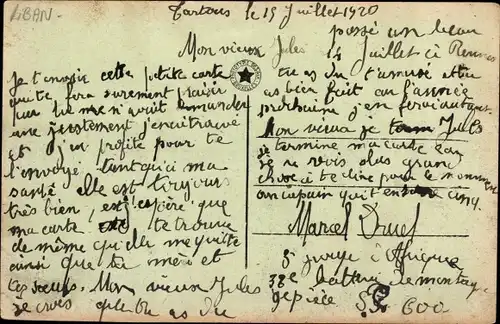 LIBAN-
Tartous le 15 Juillet 1920
Mon vieux Jules
Je t'envoie cette petite carte
qui te fera surement plaisir
car tu me n'avait demander
une justement j'en ai trouvé
et j'en profite pour te
l'envoyé tant qu'à ma
santé elle est toujours
très bien, et j'espère que
ma carte te trouve
de même qu'elle me quitte
ainsi que ta mère et
tes sœurs. Mon vieux Jules
je crois que tu as du
passé un beau
14 Juillet à Rennes
tu as du t'amusé
as bien fait car l'année
prochaine j'en ferai autant.
Mon vieux Jules
je termine ma carte car
je ne vois plus grand
chose à te dire pour le moment
un copain qui t'en cinq.
Marcel Druel
d'Afrique
batterie de montagne
pièce S.P. 600